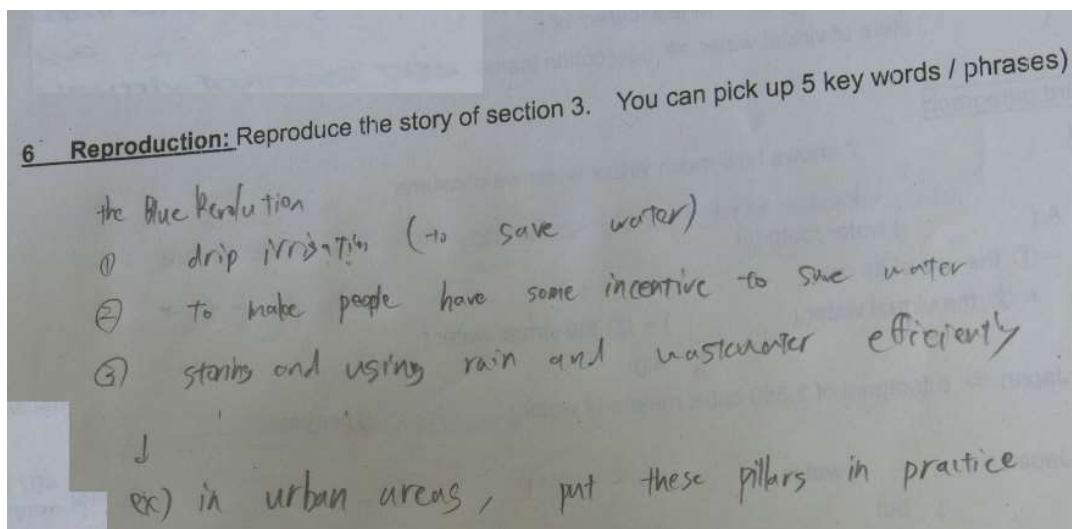 6 Reproduction: Reproduce the story of section 3. You can pick up 5 key words / phrases)
the Blue Revolution
① drip irrigation (to save water)
② to make people have some incentive to save water
③ storing and using rain and wastewater efficiently
↓
ex) in urban areas, put these pillars in practice